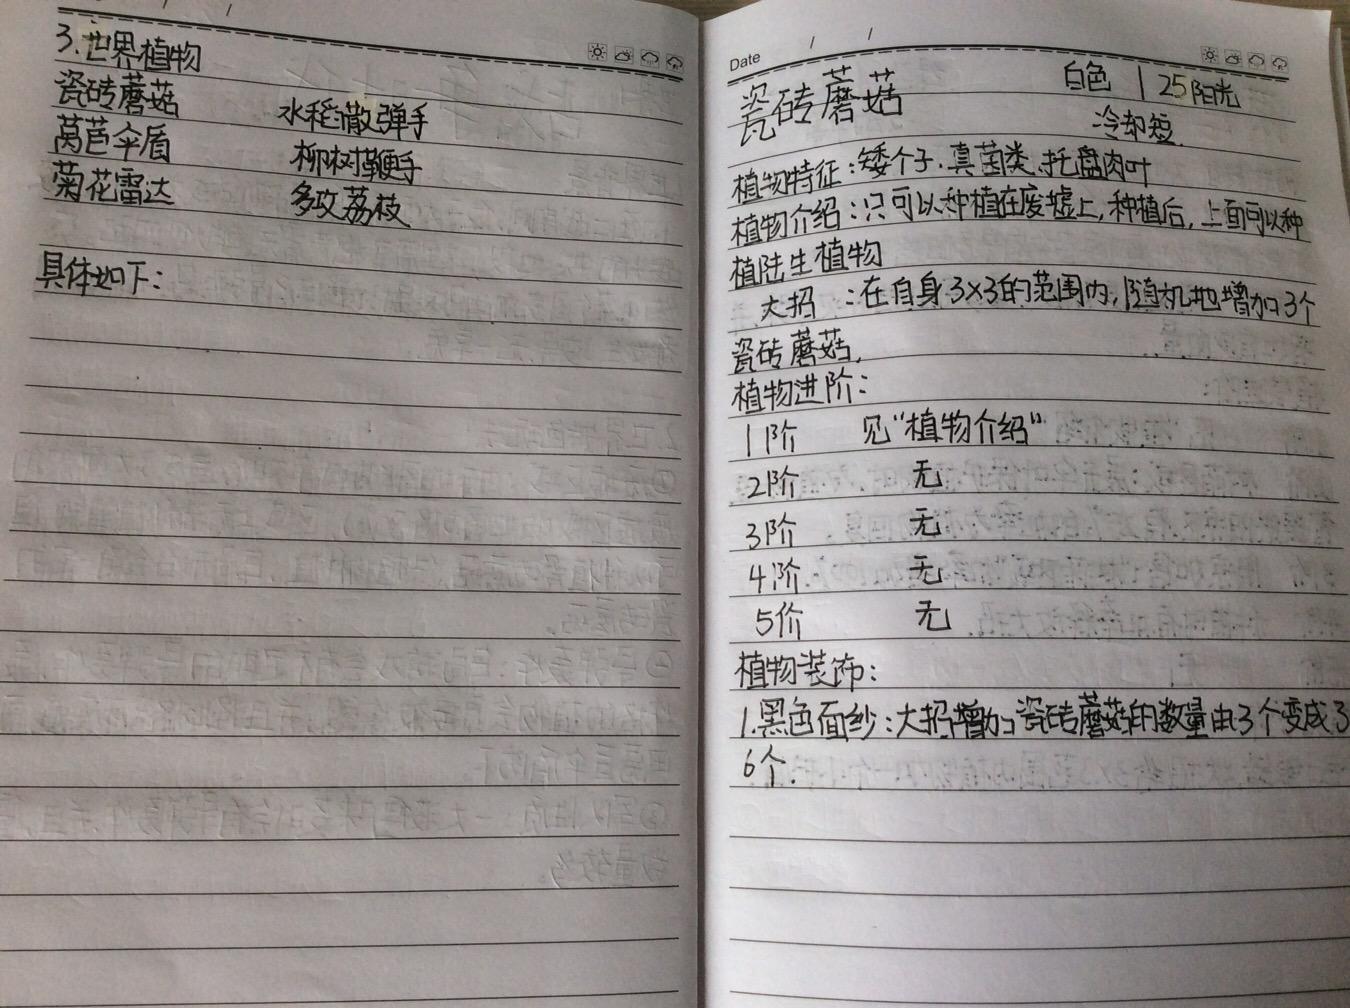 3.世界植物
瓷砖蘑菇 水稻散弹手
莴苣伞盾 柳树鞭手
菊花雷达 多攻荔枝
具体如下：
Date / /
瓷砖蘑菇 白色 | 25阳光
冷却短.
植物特征：矮个子.真菌类.托盘肉叶
植物介绍：只可以种植在废墟上，种植后，上面可以种
植陆生植物
大招 ：在自身3×3的范围内，随机地增加3个
瓷砖蘑菇.
植物进阶：
1阶 见“植物介绍”
2阶 无
3阶 无
4阶 无
5价 无
植物装饰：
1.黑色面纱：大招增加瓷砖蘑菇的数量由3个变成了
6个.